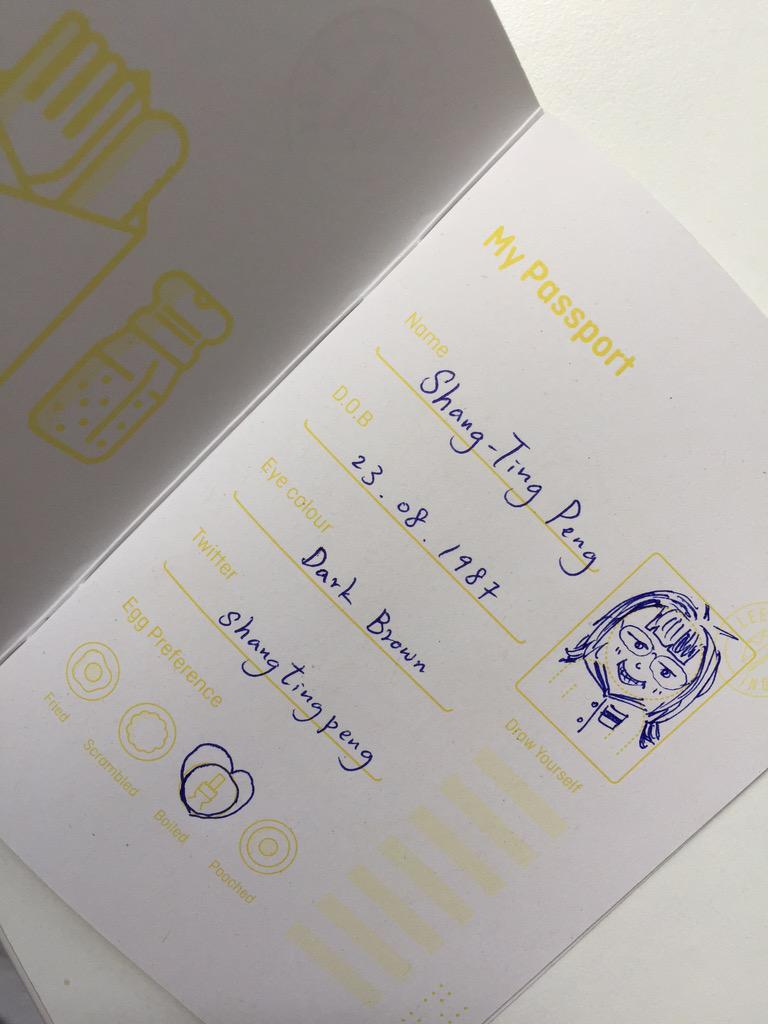 My Passport
Name
Shang-Ting Peng
D.O.B
23.08.1987
Eye colour
Dark Brown
Twitter
shangtingpeng
Egg Preference
Fried
Scrambled
Boiled
Poached
Draw Yourself
LEE